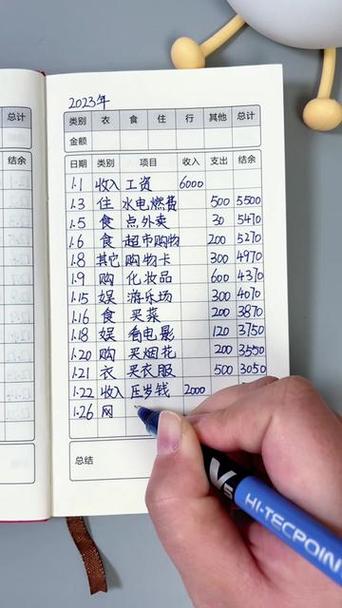 总计
结余
2023年
类别 衣 食 住 行 其他 总计
金额
日期 类别 项目 收入 支出 结余
1.1 收入 工资 6000
1.3 住 水电燃费 500 5500
1.5 食 点外卖 30 5470
1.6 食 超市购物 200 5270
1.8 其它 购物卡 300 4970
1.9 购 化妆品 600 4370
1.15 娱 游乐场 300 4070
1.16 食 买菜 200 3870
1.18 娱 看电影 120 3750
1.20 购 买烟花 200 3550
1.21 衣 买衣服 500 3050
1.22 收入 压岁钱 2000
1.26 网
总结
V5 HI-TECPOIN